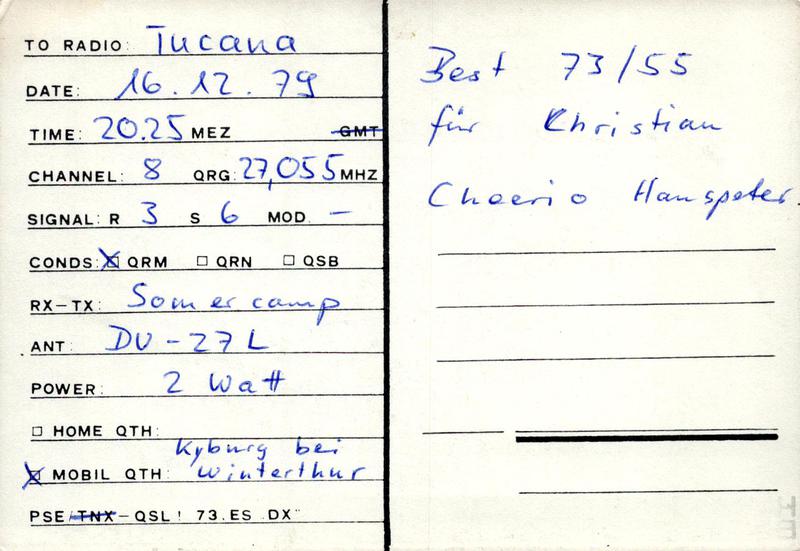 TO RADIO: Tucana
DATE: 16.12.79
TIME: 20.25 MEZ GMT
CHANNEL: 8 QRG: 27,055 MHZ
SIGNAL: R 3 S 6 MOD. —
CONDS: ☒ QRM ☐ QRN ☐ QSB
RX-TX: Somercamp
ANT: DV-27L
POWER: 2 Watt
☐ HOME QTH:
Kyburg bei
☒ MOBIL QTH: Winterthur
PSE/TNX-QSL! 73.ES DX"
Best 73/55
für Christian
Cheerio Hanspeter.